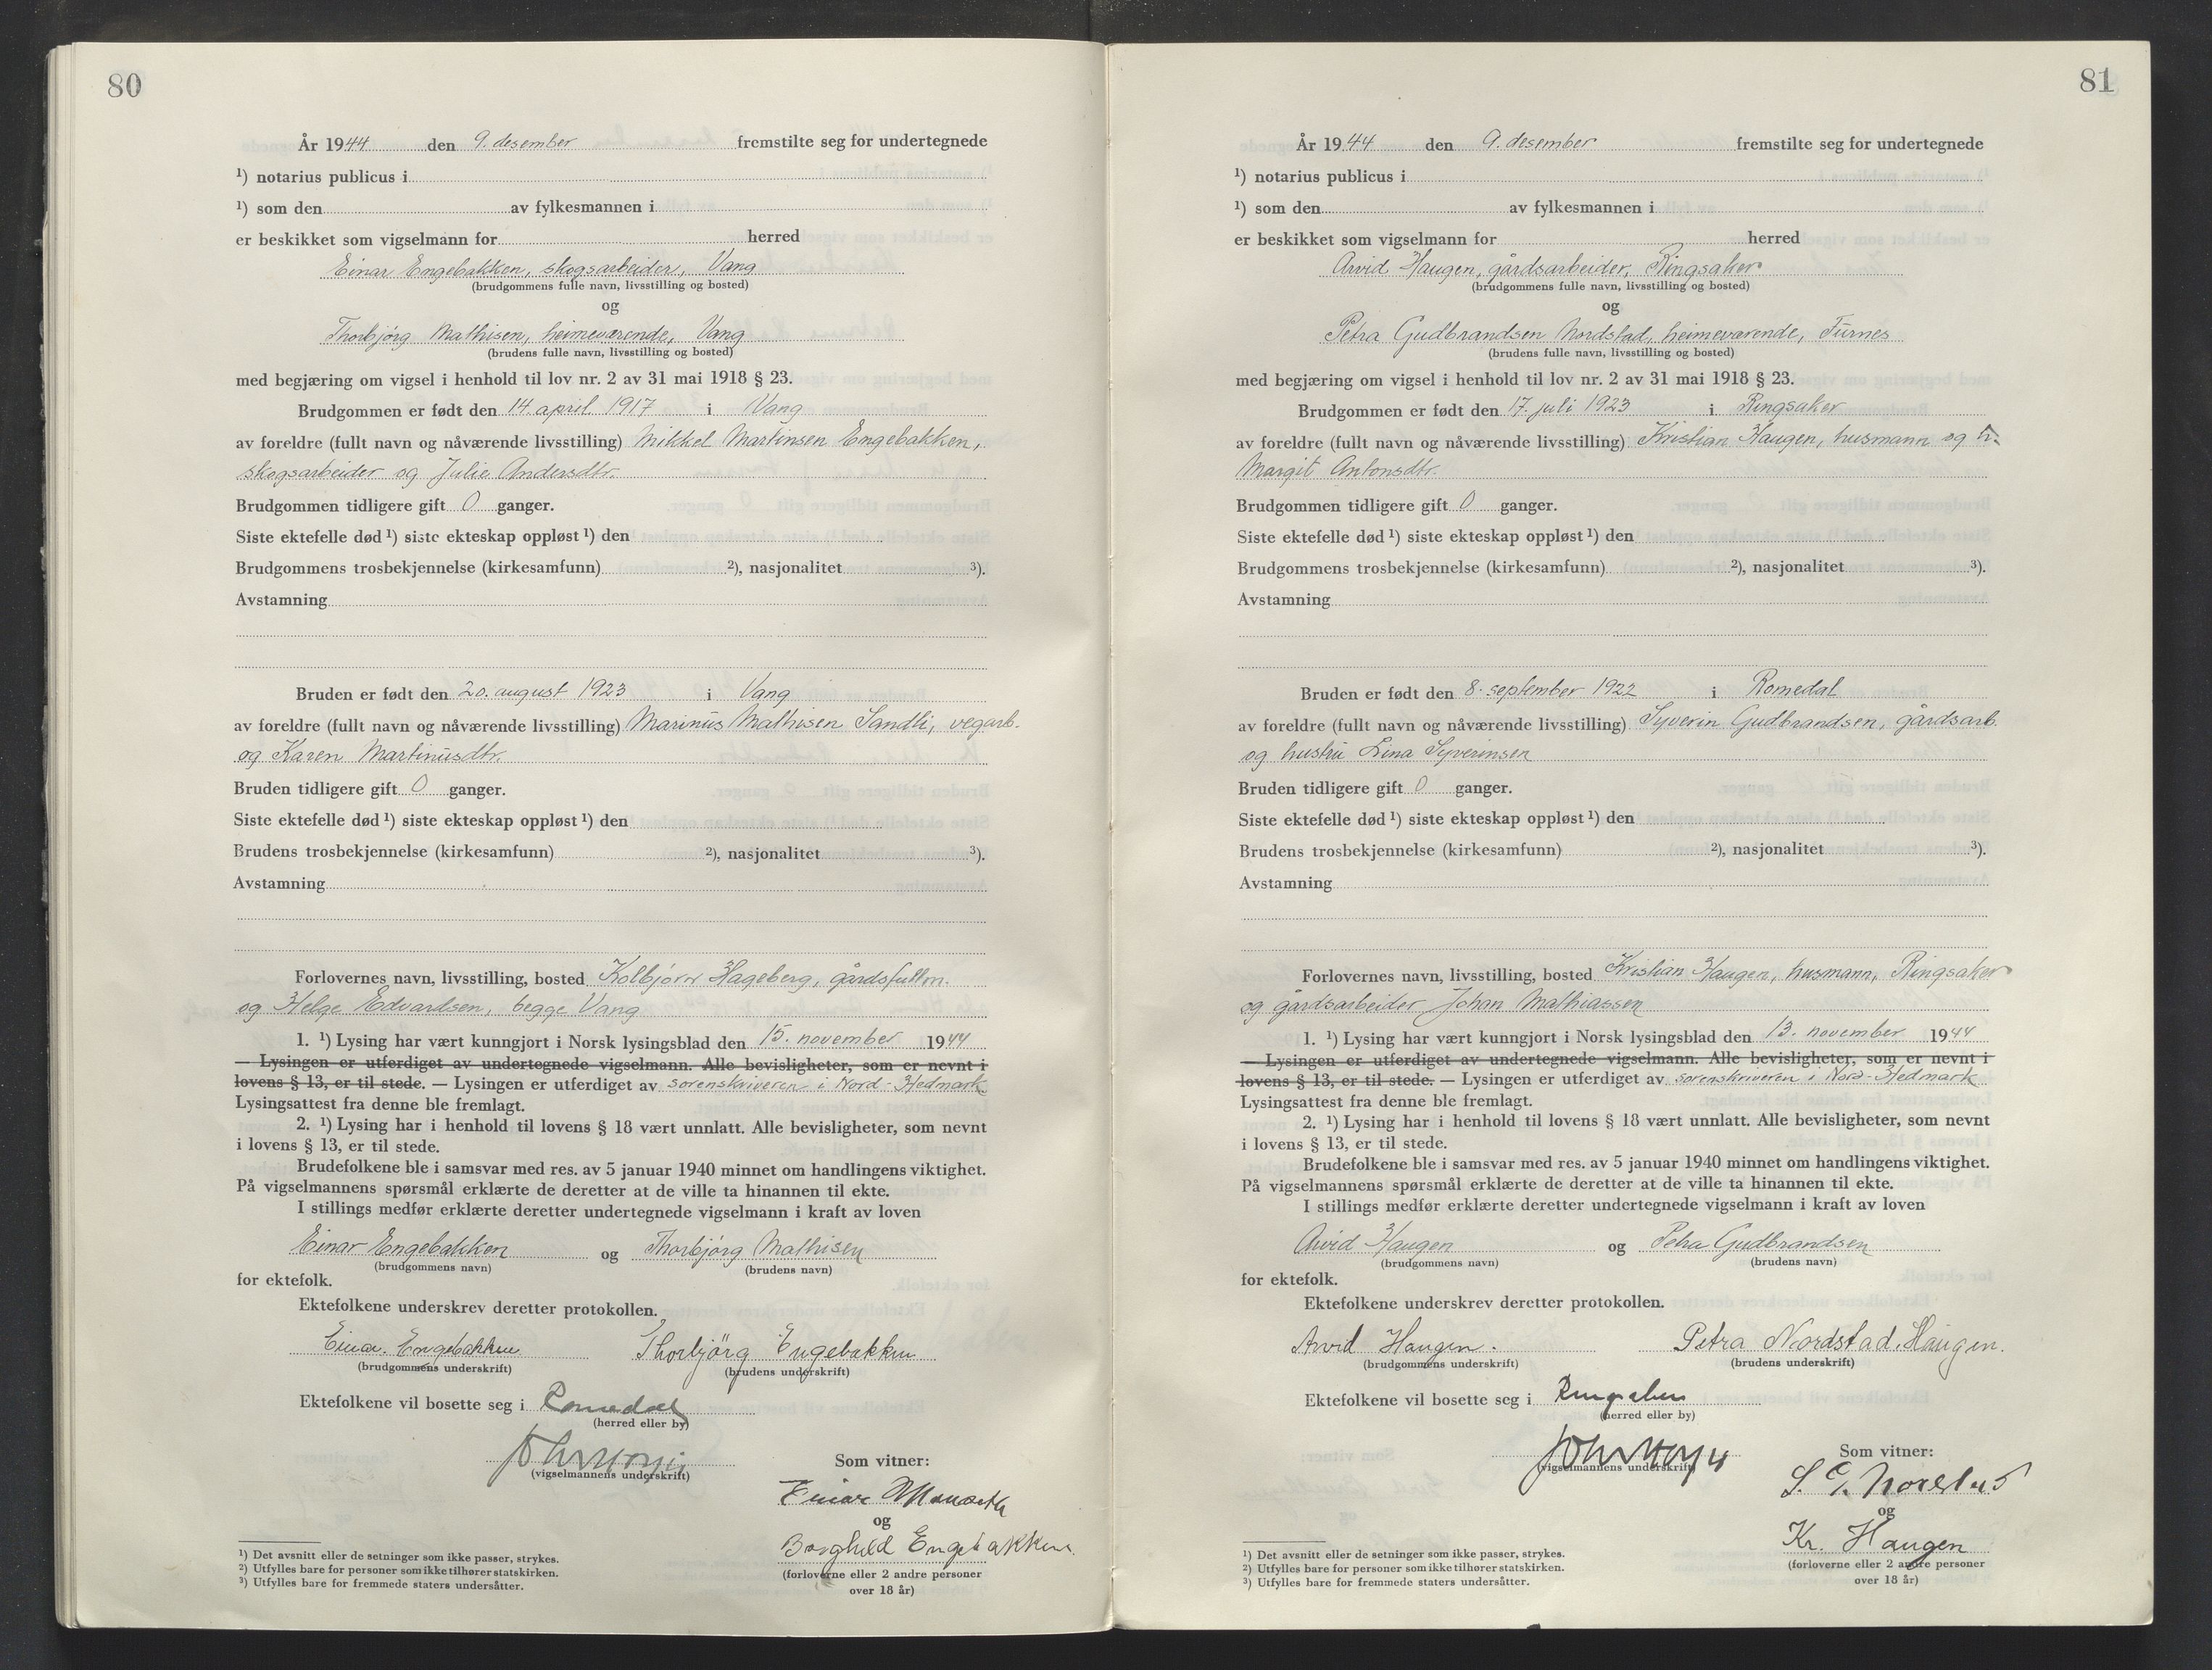 80
År 1944 den 9. desember fremstilte seg for undertegnede
¹) notarius publicus i
¹) som den av fylkesmannen i
er beskikket som vigselmann for herred
Einar Engebakken, skogsarbeider, Vang
(brudgommens fulle navn, livsstilling og bosted)
og
Thorbjörg Mathisen, heimeværende, Vang
(brudens fulle navn, livsstilling og bosted)
med begjæring om vigsel i henhold til lov nr. 2 av 31 mai 1918 § 23.
Brudgommen er født den 14. april 1917 i Vang
av foreldre (fullt navn og nåværende livsstilling) Mikkel Martinsen Engebakken,
skogsarbeider og Julie Andersdtr.
Brudgommen tidligere gift 0 ganger.
Siste ektefelle død ¹) siste ekteskap oppløst ¹) den
Brudgommens trosbekjennelse (kirkesamfunn) ²), nasjonalitet ³).
Avstamning
Bruden er født den 20. august 1923 i Vang
av foreldre (fullt navn og nåværende livsstilling) Marinus Mathisen Sandli, vegarb.
og Karen Martinusdtr.
Bruden tidligere gift 0 ganger.
Siste ektefelle død ¹) siste ekteskap oppløst ¹) den
Brudens trosbekjennelse (kirkesamfunn) ²), nasjonalitet ³).
Avstamning
Forlovernes navn, livsstilling, bosted Kolbjørn Hageberg, gårdsfullm.
og Helge Edvardsen, begge Vang
1. ¹) Lysing har vært kunngjort i Norsk lysingsblad den 15. november 1944
— Lysingen er utferdiget av undertegnede vigselmann. Alle bevisligheter, som er nevnt i
lovens § 13, er til stede. — Lysingen er utferdiget av sorenskriveren i Nord-Hedmark
Lysingsattest fra denne ble fremlagt.
2. ¹) Lysing har i henhold til lovens § 18 vært unnlatt. Alle bevisligheter, som nevnt
i lovens § 13, er til stede.
Brudefolkene ble i samsvar med res. av 5 januar 1940 minnet om handlingens viktighet.
På vigselmannens spørsmål erklærte de deretter at de ville ta hinannen til ekte.
I stillings medfør erklærte deretter undertegnede vigselmann i kraft av loven
Einar Engebakken og Thorbjörg Mathisen
(brudgommens navn) (brudens navn)
for ektefolk.
Ektefolkene underskrev deretter protokollen.
Einar Engebakken Thorbjörg Engebakken
(brudgommens underskrift) (brudens underskrift)
Ektefolkene vil bosette seg i Romedal
(herred eller by)
(vigselmannens underskrift)
Som vitner:
Einar
og
Borghild Engebakken
(forloverne eller 2 andre personer
over 18 år)
¹) Det avsnitt eller de setninger som ikke passer, strykes.
²) Utfylles bare for personer som ikke tilhører statskirken.
³) Utfylles bare for fremmede staters undersåtter.
81
År 1944 den 9. desember fremstilte seg for undertegnede
¹) notarius publicus i
¹) som den av fylkesmannen i
er beskikket som vigselmann for herred
Arvid Haugen, gårdsarbeider, Ringsaker
(brudgommens fulle navn, livsstilling og bosted)
og
Petra Gudbrandsen Nordstad, heimeværende, Furnes
(brudens fulle navn, livsstilling og bosted)
med begjæring om vigsel i henhold til lov nr. 2 av 31 mai 1918 § 23.
Brudgommen er født den 17. juli 1923 i Ringsaker
av foreldre (fullt navn og nåværende livsstilling) Kristian Haugen, husmann og h.
Margit Antonsdtr.
Brudgommen tidligere gift 0 ganger.
Siste ektefelle død ¹) siste ekteskap oppløst ¹) den
Brudgommens trosbekjennelse (kirkesamfunn) ²), nasjonalitet ³).
Avstamning
Bruden er født den 8. september 1922 i Romedal
av foreldre (fullt navn og nåværende livsstilling) Syverin Gudbrandsen, gårdsarb.
og hustru Lina Syverinsen
Bruden tidligere gift 0 ganger.
Siste ektefelle død ¹) siste ekteskap oppløst ¹) den
Brudens trosbekjennelse (kirkesamfunn) ²), nasjonalitet ³).
Avstamning
Forlovernes navn, livsstilling, bosted Kristian Haugen, husmann, Ringsaker
og gårdsarbeider Johan Mathiassen
1. ¹) Lysing har vært kunngjort i Norsk lysingsblad den 13. november 1944
— Lysingen er utferdiget av undertegnede vigselmann. Alle bevisligheter, som er nevnt i
lovens § 13, er til stede. — Lysingen er utferdiget av sorenskriveren i Nord-Hedmark
Lysingsattest fra denne ble fremlagt.
2. ¹) Lysing har i henhold til lovens § 18 vært unnlatt. Alle bevisligheter, som nevnt
i lovens § 13, er til stede.
Brudefolkene ble i samsvar med res. av 5 januar 1940 minnet om handlingens viktighet.
På vigselmannens spørsmål erklærte de deretter at de ville ta hinannen til ekte.
I stillings medfør erklærte deretter undertegnede vigselmann i kraft av loven
Arvid Haugen og Petra Gudbrandsen
(brudgommens navn) (brudens navn)
for ektefolk.
Ektefolkene underskrev deretter protokollen.
Arvid Haugen. Petra Nordstad. Haugen.
(brudgommens underskrift) (brudens underskrift)
Ektefolkene vil bosette seg i Ringsaker
(herred eller by)
(vigselmannens underskrift)
Som vitner:
S. G. Norstad
og
Kr. Haugen
(forloverne eller 2 andre personer
over 18 år)
¹) Det avsnitt eller de setninger som ikke passer, strykes.
²) Utfylles bare for personer som ikke tilhører statskirken.
³) Utfylles bare for fremmede staters undersåtter.